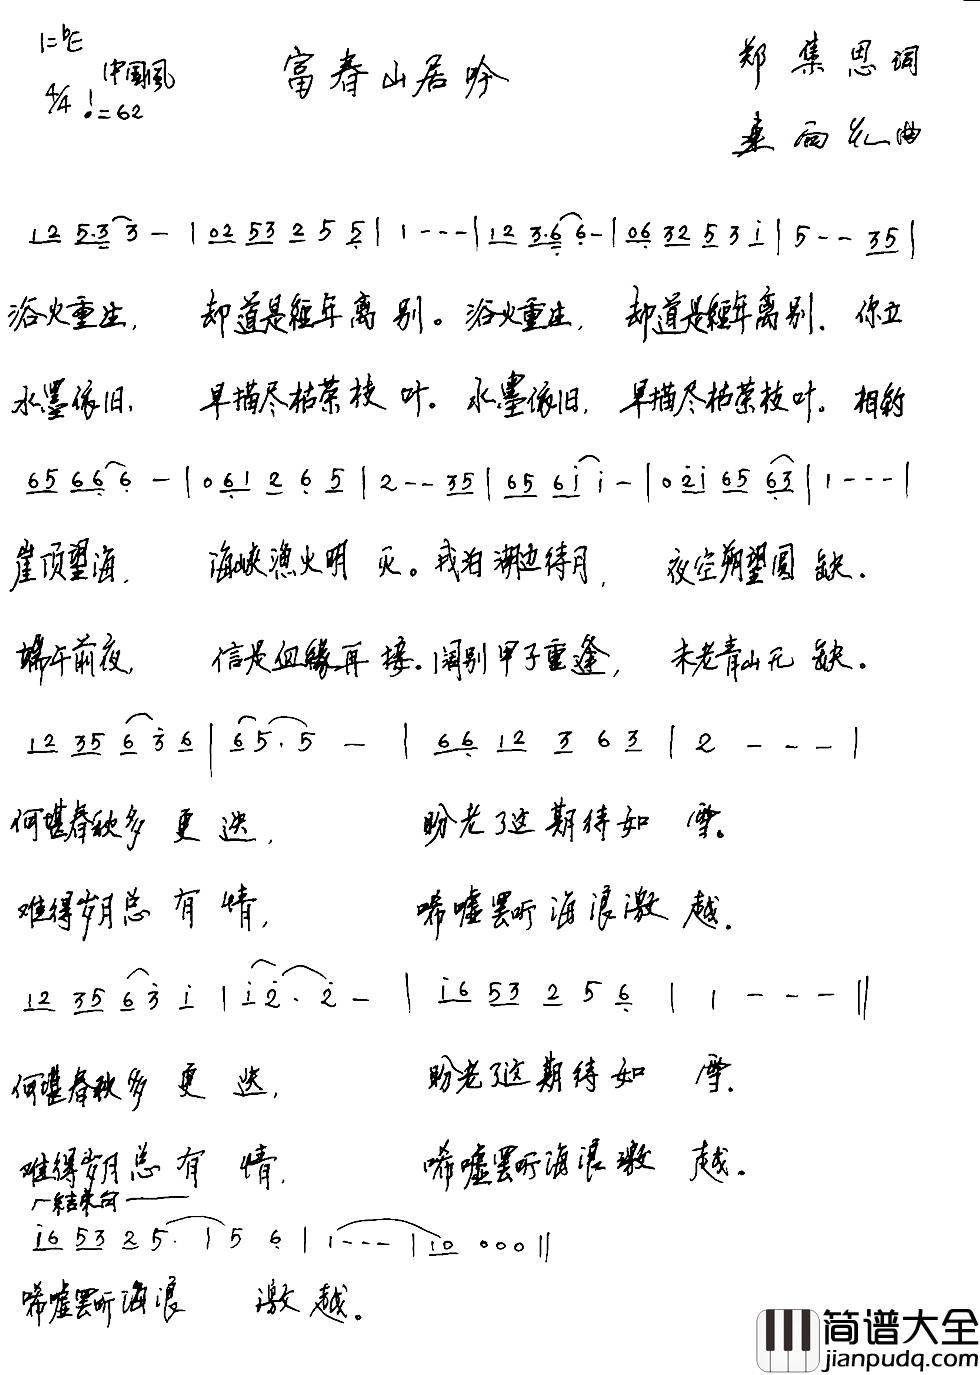 1=bE
4/4 ♩=62 中国风
富春山居吟
郑集恩词
桑雨红曲
12 5.3 3 - | 02 53 2 5 5 | 1 - - - | 12 3.6 6 - | 06 32 5 3 i | 5 - - 35 |
浴火重生, 却道是經年离别。浴火重生, 却道是經年离别. 你立
水墨依旧, 早描尽枯荣枝叶。水墨依旧, 早描尽枯荣枝叶。相約
65 66 6 - | 0 61 2 6 5 | 2 - - 35 | 65 6i i - | 0 2i 65 63 | 1 - - - |
崖顶望海, 海峡漁火明灭。我泊湖边待月, 夜空朔望圆缺.
端午前夜, 信是血緣再接. 阔别甲子重逢, 未老青山无缺。
12 35 6 3 6 | 6 5. 5 - | 66 12 3 6 3 | 2 - - - |
何堪春秋多更迭, 盼老了这期待如雪。
难得岁月总有情, 唏嘘罢听海浪激越.
12 35 6 3 i | i 2. 2 - | i6 53 2 5 6 | 1 - - - ||
何堪春秋多更迭, 盼老了这期待如雪.
难得岁月总有情, 唏嘘罢听海浪激越。
结束句
i6 53 2 5. | 5 6 | 1 - - - | 10 0 0 0 ||
唏嘘罢听海浪激越。
简谱大全
jianpudq.com